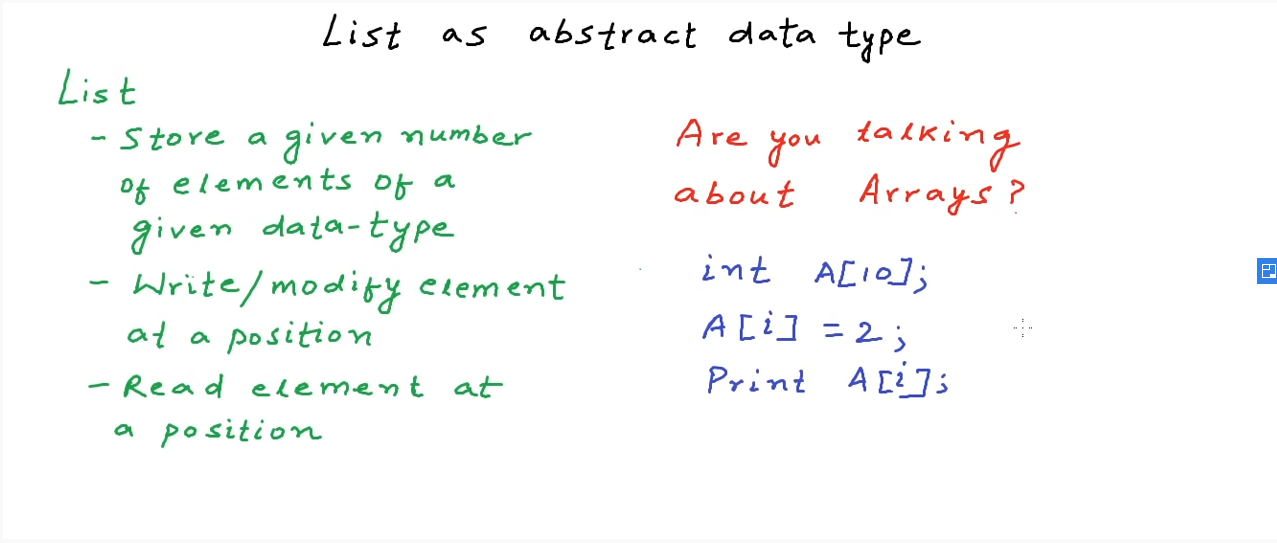 List as abstract data type
List
- Store a given number
of elements of a
given data-type
- Write/modify element
at a position
- Read element at
a position
Are you talking
about Arrays?
int A[10];
A[i] = 2;
Print A[i];